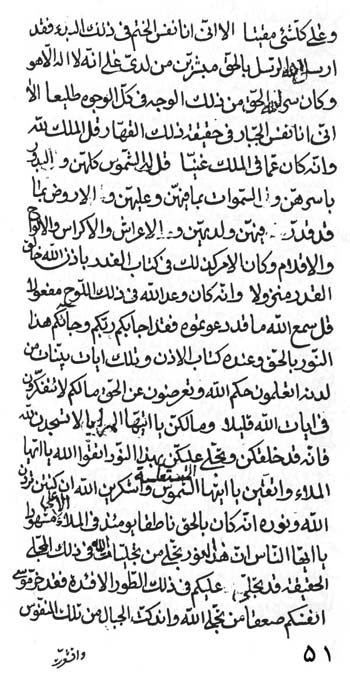 وعلى كلشئ مقيتا الا اننى انا نفس الختم فى ذلك البدء فقد
ارسل الرسل بالحق مبشرين من لدى على انه لا اله الا هو
وكان سر الحق من ذلك الوجه فى كل الوجوه طالعا الا
اننى انا نفس الجبار فى حقيقة ذلك القهار قل الملك لله
وانه كان عما فى الملك غنيا قل الشموس كلهن و البدور
باسرهن و السموات بما فيهن و عليهن و الارض بما
قد قدر فيهن ولديهن و الاعراش والاكراس والالواح
والاقلام وكان الامر كذلك فى كتاب القدر باذن الله خالق
القدر منزولا وانه كان وعد الله فى ذلك اللوح مفعولا
قل سمع الله ما قد دعوتموه وقد اجابكم ربكم وجائكم هذا
النور بالحق وعنده كتاب الاذن و تلك ايات بينات من
لدنه اتعلمون حكم الله وتعرضون عن الحق مالكم لا تتفكرون
فى ايات الله قليلا ومالكن يا ايتها الا تسجدن لله
فانه قد خلقكن وتجلى عليكن بهذا النور اتقوا الله يا ايها
الملاء واتقين يا ايتها الشموس واشكرين الله ان كنتن ترون
الله ونوره انه كان بالحق ناطقا يومئذ فى الملاء الاعلى مشهودا
يا ايها الناس ان هذا نور تجلى من تجليات الله فى ذلك المجلى
الحقيقة قد تجلى عليكم فى ذلك الطور الافئدة فقد خر موسى
انفسكم صعقا من تجلى الله واندكت الجبال من تلك النفوس
٥١